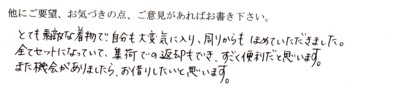 他にご要望、お気づきの点、ご意見があればお書き下さい。
とても素敵な着物で自分も大変気に入り、周りからもほめていただきました。
全てセットになっていて、集荷での返却もでき、すごく便利だと思います。
また機会がありましたら、お借りしたいと思います。